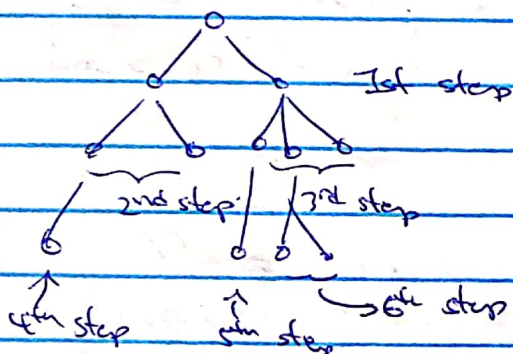 1st step
2nd step
3rd step
4th step
5th step
6th step